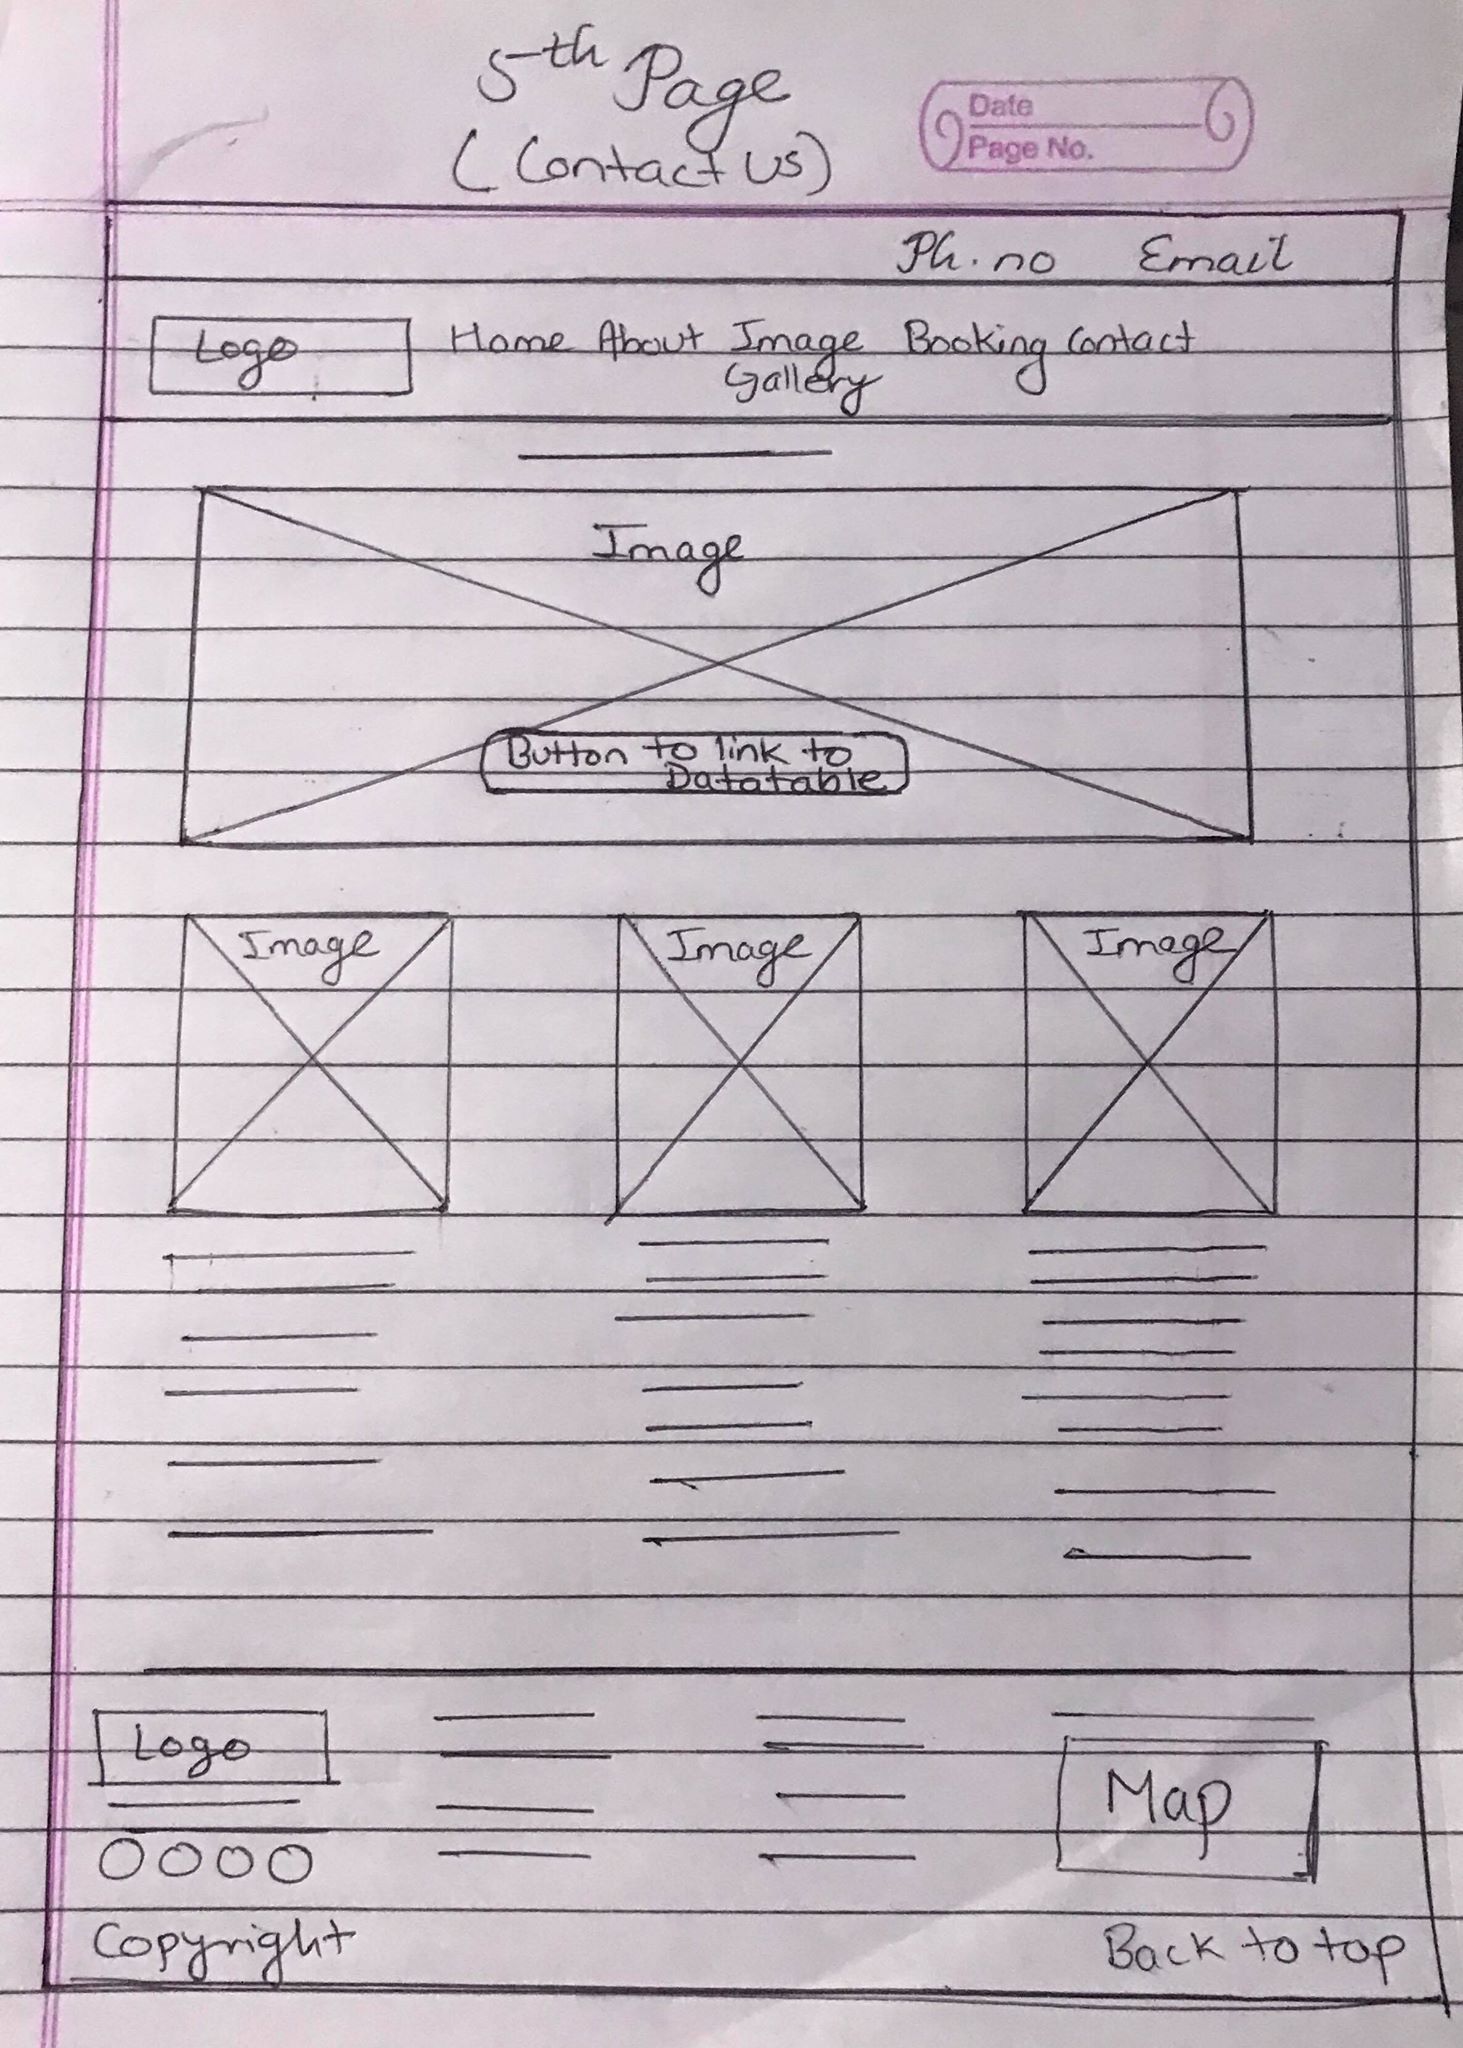 5th Page
(Contact us)
Date
Page No.
Ph. no Email
Logo Home About Image Booking Contact
Gallery
Image
Button to link to
Datatable
Image Image Image
Logo
Map
Copyright Back to top